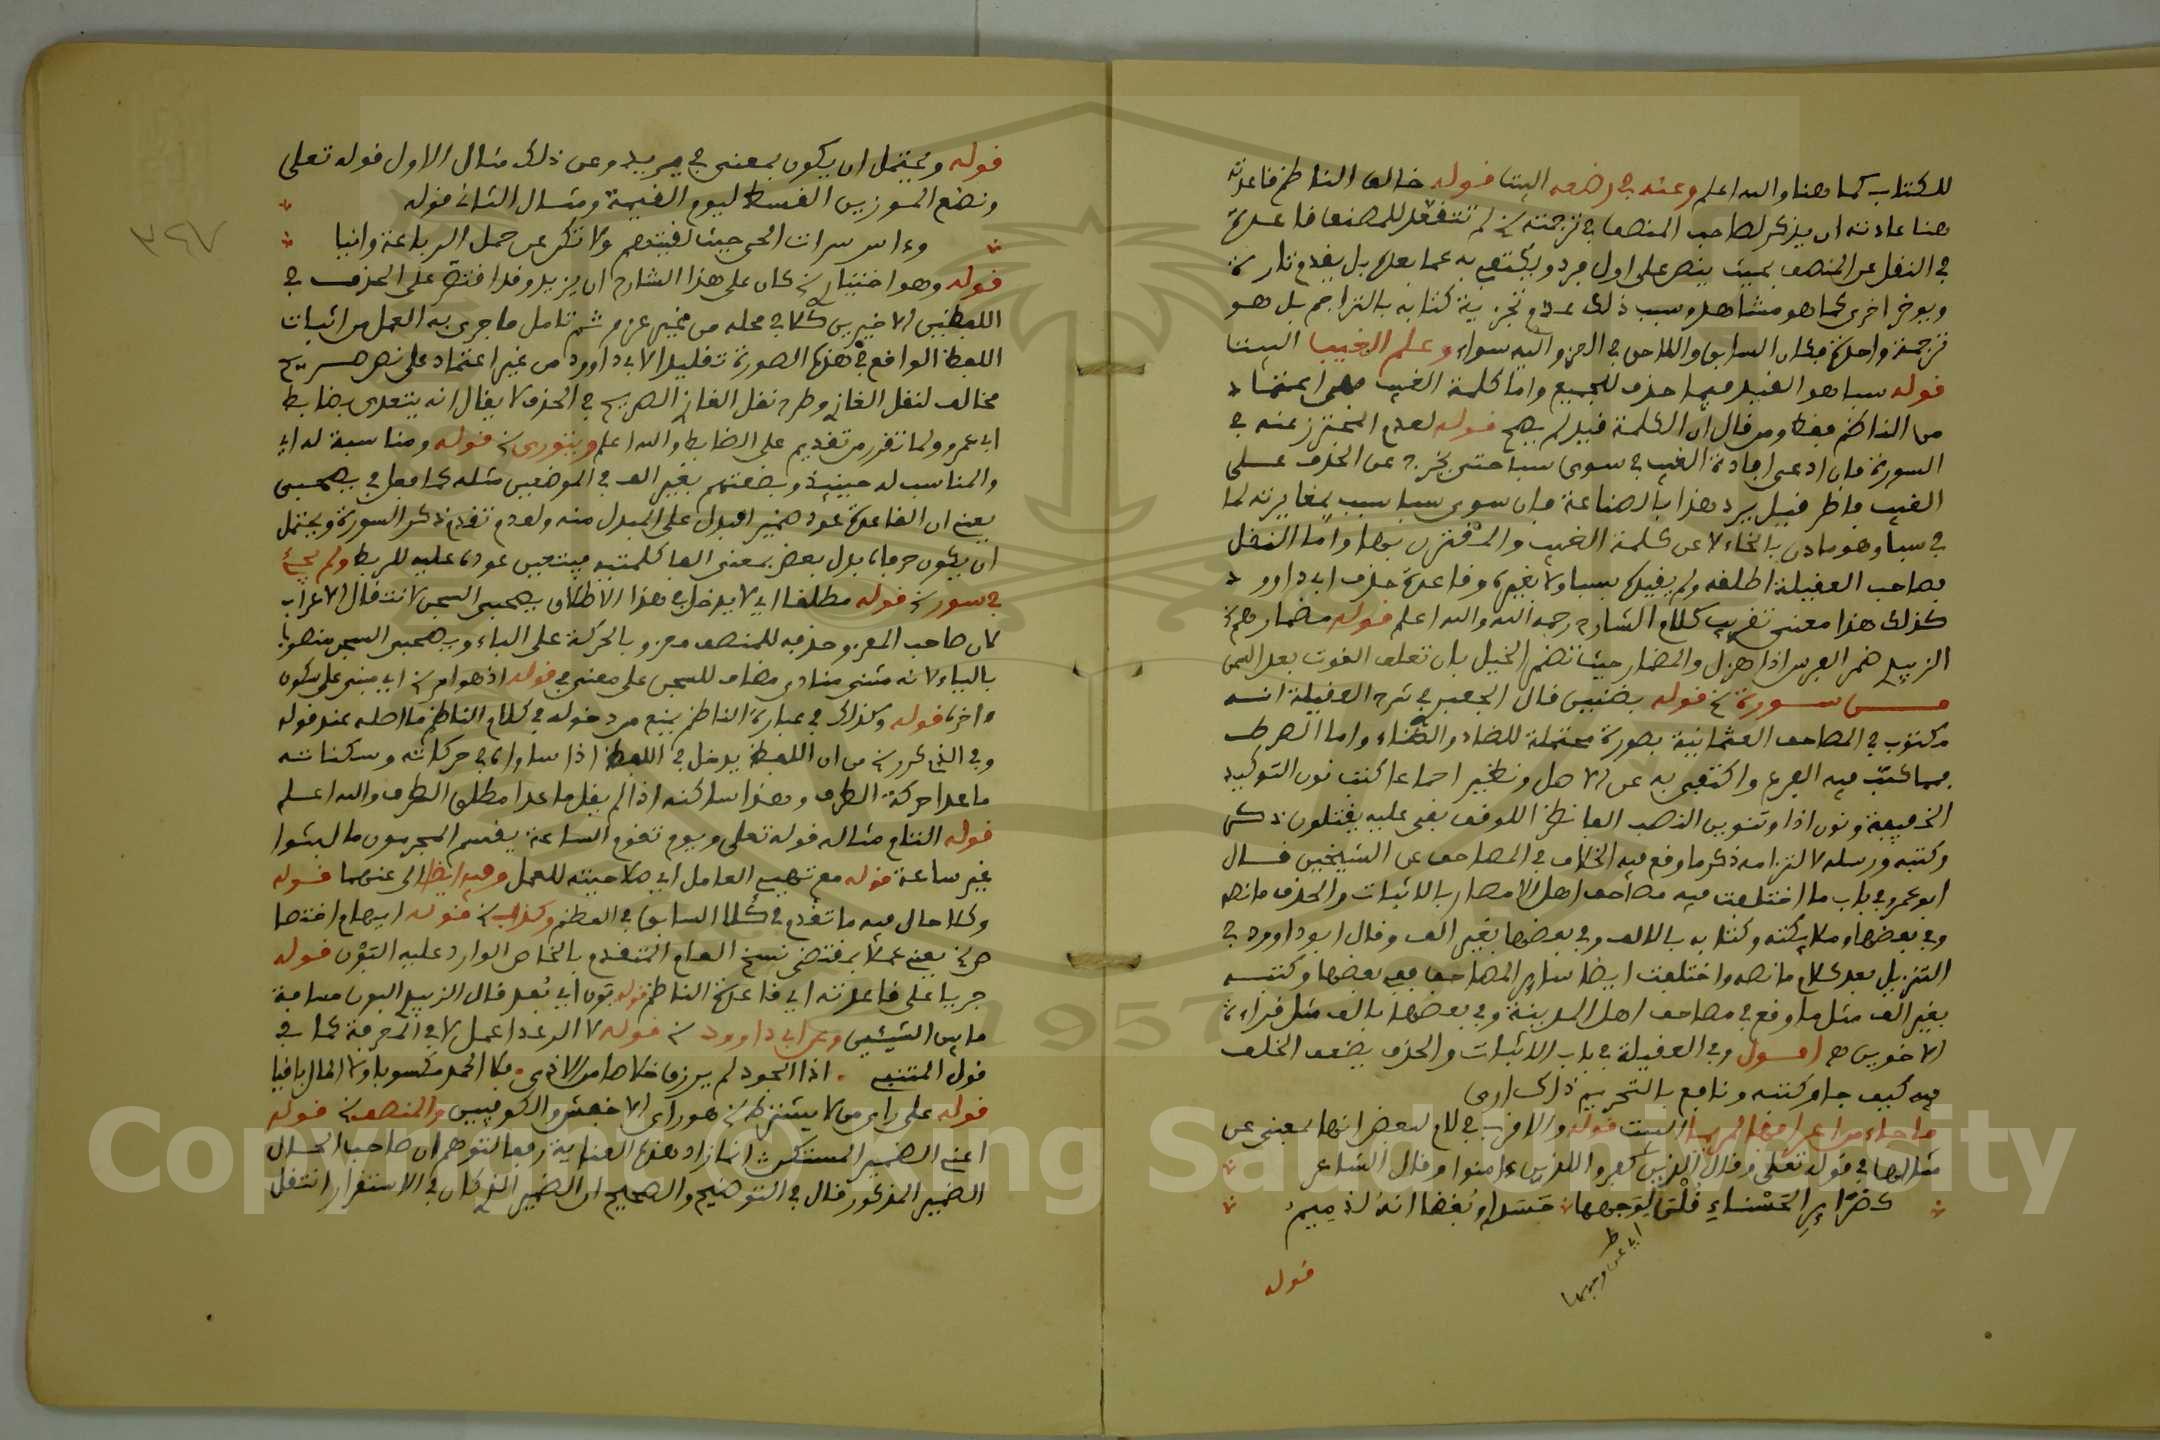 للكتاب كما هنا والله اعلم وعنه في رضعه البيتا قوله خالف الناظم قاعدته
هنا عادته ان يذكر لصاحب المنصف في ترجمته لم تتفعل للمصنف قاعدة
في النقل عن المنصف بحيث ينص على اول فرد ويكتفي به عما بعده بل يقدم تارة
ويوخر اخرى كما هو مشاهد وسبب ذلك عدم تجزية كتابه بالتراجم بل هو
ترجمة واحدة فكان السابق واللاحق في الحرز واليه سواء وعلم الغيب البيتا
قوله سبا هو القيد فيما حذف للجميع واما كلمة الغيب فهي اعتماد
من الناظم فقط ومن قال ان الكلمة قيد لم يصح قوله لعدم المحترز عنه في
السورة فان ادعى افادة الغيب في سوى سبا حتى يخرج عن الحذف على
الغيب فاطر قيل يرد هذا بالصناعة فان سوى سبا سبب لمغايرته لما
في سبا وهو مادل بالخاء لا عن كلمة الغيب والمقترن بها واما النقل
فصاحب العقيلة اطلقه ولم يقيده بسبا ولا بغيره وقاعدة حذف ابي داوود
كذلك هذا معنى تقريب كلام الشارح رحمه الله والله اعلم قوله مضمار
الزبيدي ضمر الفرس اذا هزل والمضمار حيث تضمر الخيل بان تعلف القوت بعد السمن
من سورة قوله بضنين قال الجعبري في شرح العقيلة انه
مكتوب في المصاحف العثمانية بصورة محتملة للضاد والظاء واما الصرط
فيما كتب فيه الفرع واكتفي به عن الاصل ونظير اجماعا كتب نون التوكيد
الخفيفة ونون اذا وتنوين النصب الفا نظرا للوقف بقى عليه يقتلون ذكر
وكتبه ورسله لالتزامه ذكر ما وقع فيه الخلاف في المصاحف عن الشيخين قال
ابو عمرو في باب ما اختلفت فيه مصاحف اهل الامصار بالاثبات والحذف ما نصه
وفي بعضها وملايكته وكتابه بالالف وفي بعضها بغير الف وقال ابو داوود في
التنزيل بعد كلام ما نصه واختلفت ايضا ساير المصاحف ففي بعضها وكتبه
بغير الف مثل ما وقع في مصاحف اهل المدينة وفي بعضها بالف مثل قراءة
الاخوين اقول وفي العقيلة في باب الاثبات والحذف يضعف الخلف
فيه كيف جا وكتبه ونافع بالتحريم ذاك ارى
ما جاء من اعرافها لمريما البيت قوله والاقرب في لام لبعض انها بمعنى عن
مثالها في قوله تعلى وقال الذين كفروا للذين ءامنوا وقال الشاعر
كضراير الحسناء قلن لوجهها حسدا وبغضا انه لذميم
اي عن وجهها ط
قوله
٣٤٧
قوله ويحتمل ان يكون بمعنى في مريد وعن ذلك مثال الاول قوله تعلى
ونضع الموزين القسط ليوم القيمة ومثال الثاني قوله
وءاس سراة الحي حيث لقيتهم ولا تك عن حمل الرباعة وانيا
قوله وهو اختيار كان على هذا الشارح ان يزيد وقد اقتصر على الحذف في
اللفظين الاخيرين كلا في محله من تخيير عن ثم تامل ما جرى به العمل من اثبات
اللفظ الواقع في هذه الصورة تقليدا لابي داوود من غير اعتماد على نص صريح
مخالف لنقل الغازي وطرح نقل الغازي الصريح في الحذف لا يقال انه يتعدى بضابط
ابي عمرو ولما تقرر من تقديم على الضابط والله اعلم ويتورى قوله ومناسبة له اي
والمناسب له حينيذ وبضعتهم بغير الف في الموضعين مثله كما فعل في يصحبي
يعني ان القاعدة عود ضمير البدل على المبدل منه ولعدم تقدم ذكر السورة ويحتمل
ان يكون حرفاه بدل بعض بمعنى الفا كلمتيه فيتعين عوده عليه للربط ولم يجئ
في سور قوله مطلقا اي لا يدخل في هذا الاطلاق يصحبي السجن لانتقال الاعراب
لان صاحب المعر وحذفه للمنصف معزو بالحركة على الباء ويصحبي السجن منصوبا
بالياء لانه مثنى منادى مضاف للسجن على معنى في قوله اذ هو امر اي مبني على سكون
ءاخره قوله وكذاك في عبارة الناظم يمنع من دخوله في كلام الناظم ما اصله عند قوله
وفي الذي كررت من ان اللفظ يدخل في اللفظ اذا ساواه في حركاته وسكناته
ماعدا حركة الطرف وهذا ساكنه اذ لم يقل ماعدا مطلق الطرف والله اعلم
قوله التام مثاله قوله تعلى ويوم تقوم الساعة يقسم المجرمون ما لبثوا
غير ساعة قوله مع تهيي العامل اي صلاحيته للعمل وفيه ايضا الى عنهما قوله
وكلا حال فيه ما تقدم في كلا السابق في العظم وكذاب قوله ايهام اختها
يعني عملا بمقتضى نسخ العام المتقدم بالخاص الوارد عليه البون قوله
جريا على قاعدته اي قاعدة الناظم قوله بون اي بعد قال الزبيدي البون مسافة
ما بين الشيئين وعن ابي داوود قوله لا الرعد اعمل لا في المعرفة كما في
قول المتنبي اذا الجود لم يرزق خلاصا من الاذى فلا الحمد مكسوبا ولا المال باقيا
قوله على راي من لا يشترط هو راي الاخفش والكوفيين والمنصف قوله
اعني الضمير المستكن انما زاد هذه العناية رفعا لتوهم ان صاحب الحال
الضمير المذكور قال في التوضيح والصحيح ان الضمير الذي كان في الاستقرار انتقل